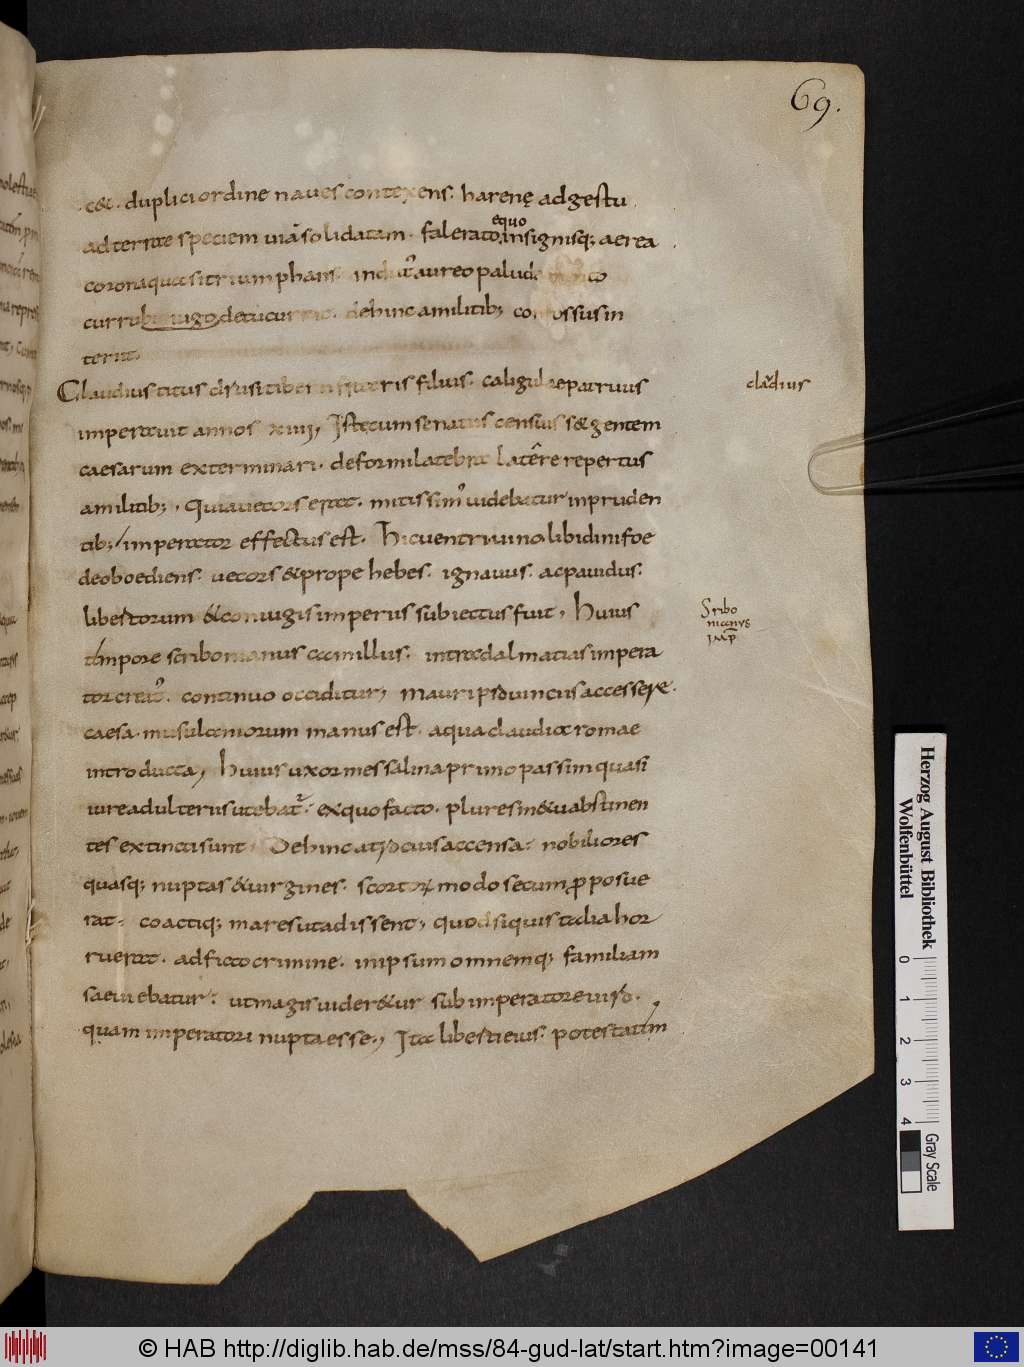 69.
c&. duplici ordine naues contexens. harenę adgestu
ad terrae speciem uiā solidatam. falerato equo insignisq; aerea
corona quasi triumphans indut' aureo paluda mento
curru biiugo decucurrit. dehinc a militib; confossus in
teriit.
Claudius titus drusi tiberii fratris filius. caligulae patruus
imperauit annos xiiii, Iste cum senatus censuisset gentem
caesarum exterminari. deformi latebra latere repertus
a militib;. quia uecors erat. mitissim' uidebatur inpruden
tib; imperator effectus est. Hic uentri uino libidini foe
de oboediens. uecors & prope hebes. ignauus. ac pauidus.
libertorum & coniugis imperiis subiectus fuit, Huius
tempore scribonianus camillus. intra dalmatias impera
tor creat'. continuo occiditur, mauri prouinciis accessere.
caesa. musulamiorum manus est. aqua claudia romae
introducta, Huius uxor messalina primo passim quasi
iure adulteriis utebat'. ex quo facto. plures metu abstinen
tes extincti sunt. Dehinc atrocius accensa. nobiliores
quasq; nuptas & uirgines. scortorum modo secum pposue
rat. coactiq; mares ut adissent, quod siquis talia hor
ruerat. adficto crimine. in ipsum omnemq; familiam
saeuiebatur. ut magis uideretur sub imperatore uiro.
quam imperatori nupta esse., Ita liberti eius. potestatem
claudius
Scribo
nianus
imp
Herzog August Bibliothek
Wolfenbüttel
0 1 2 3 4
Gray Scale
© HAB http://diglib.hab.de/mss/84-gud-lat/start.htm?image=00141